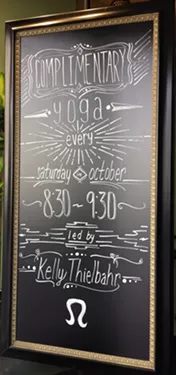 COMPLIMENTARY
yoga
every
saturday october
8:30 ~ 9:30
led by
Kelly Thielbahr